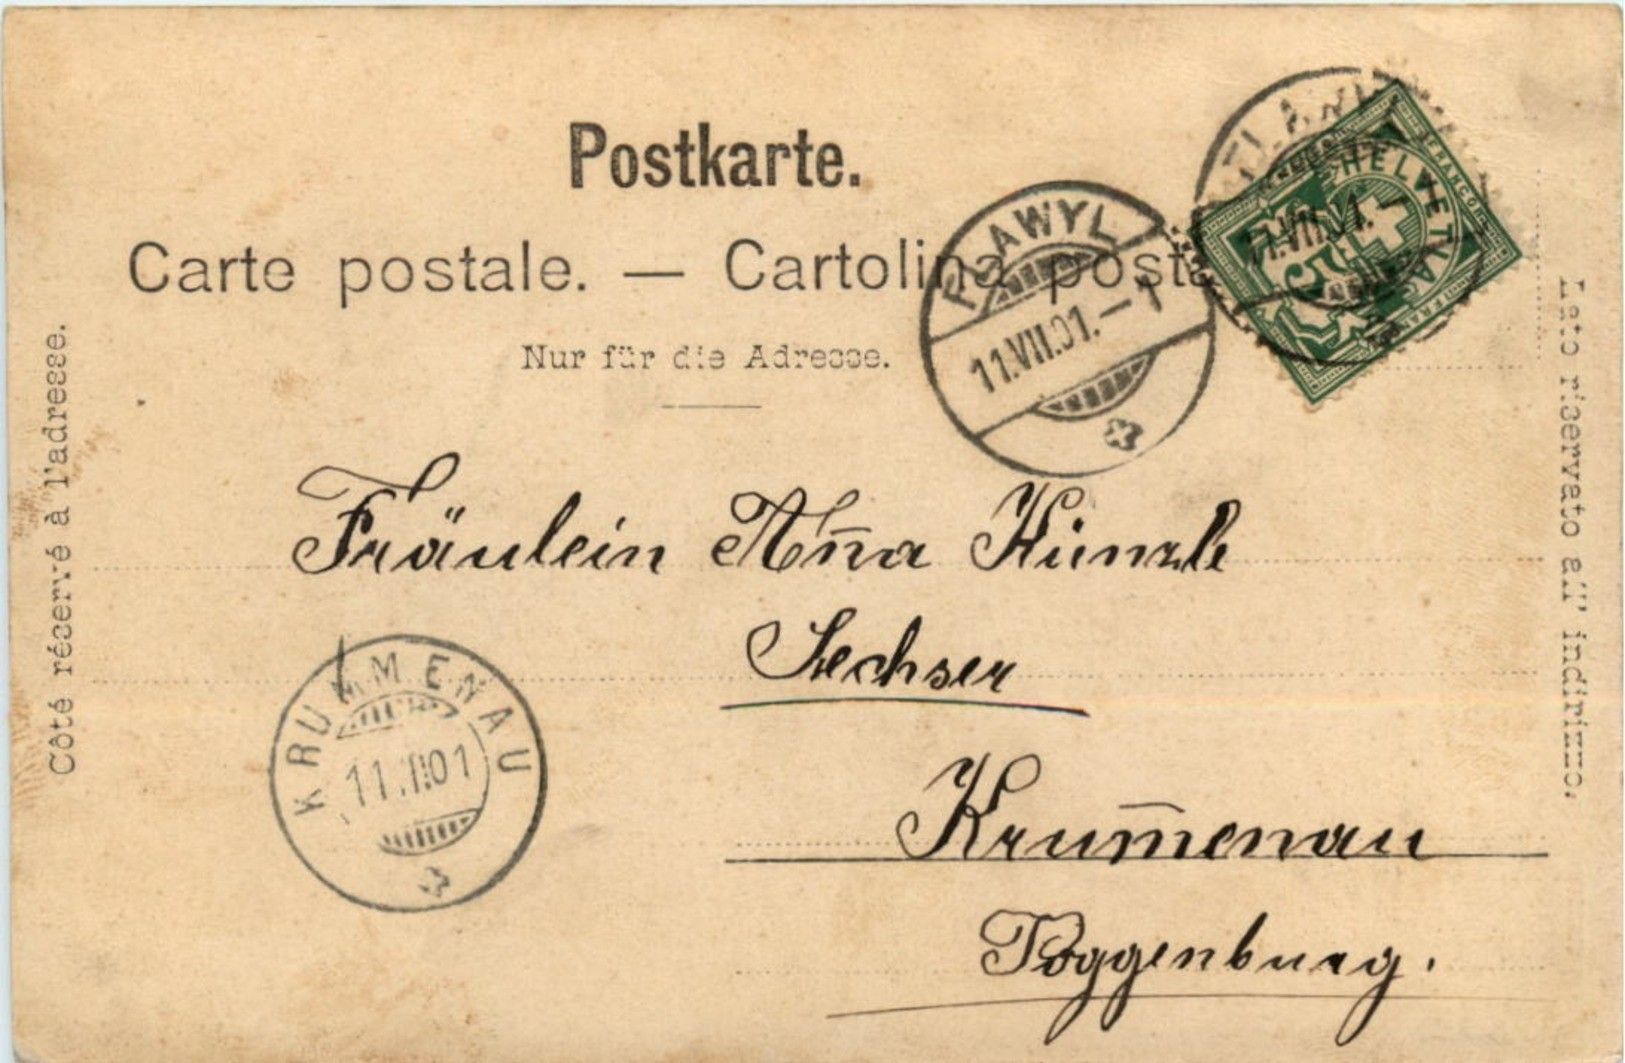 Postkarte.
Carte postale. — Cartolina posta
Nur für die Adresse.
Côté réservé à l'adresse.
Lato riservato all' indirizzo.
FLAWYL
11.VII.01.–1
FLAWYL
11.VII.01.–
HELVETIA
FRANCO
FRANCO
5
Fräulein An̄a Künzle
Sechser
Krum̄enau
Toggenburg.
KRUMMENAU
11.VII.01